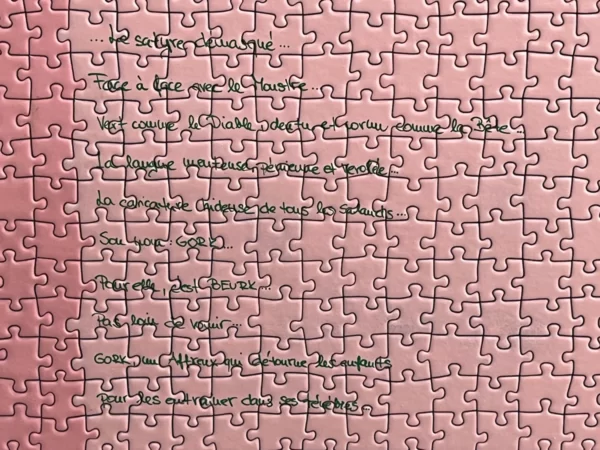 ...Le satyre démasqué...
Face à face avec le Monstre...
Vert comme le Diable, denturé et cornu comme la Bête...
La langue menteuse, vérolée...
La caricature hideuse de tous les salauds...
Son nom : GORK...
Pour elle, c'est BEURK...
Pas loin de vomir...
GORK, un Affreux qui détourne les enfants
Pour les entraîner dans ses ténèbres...